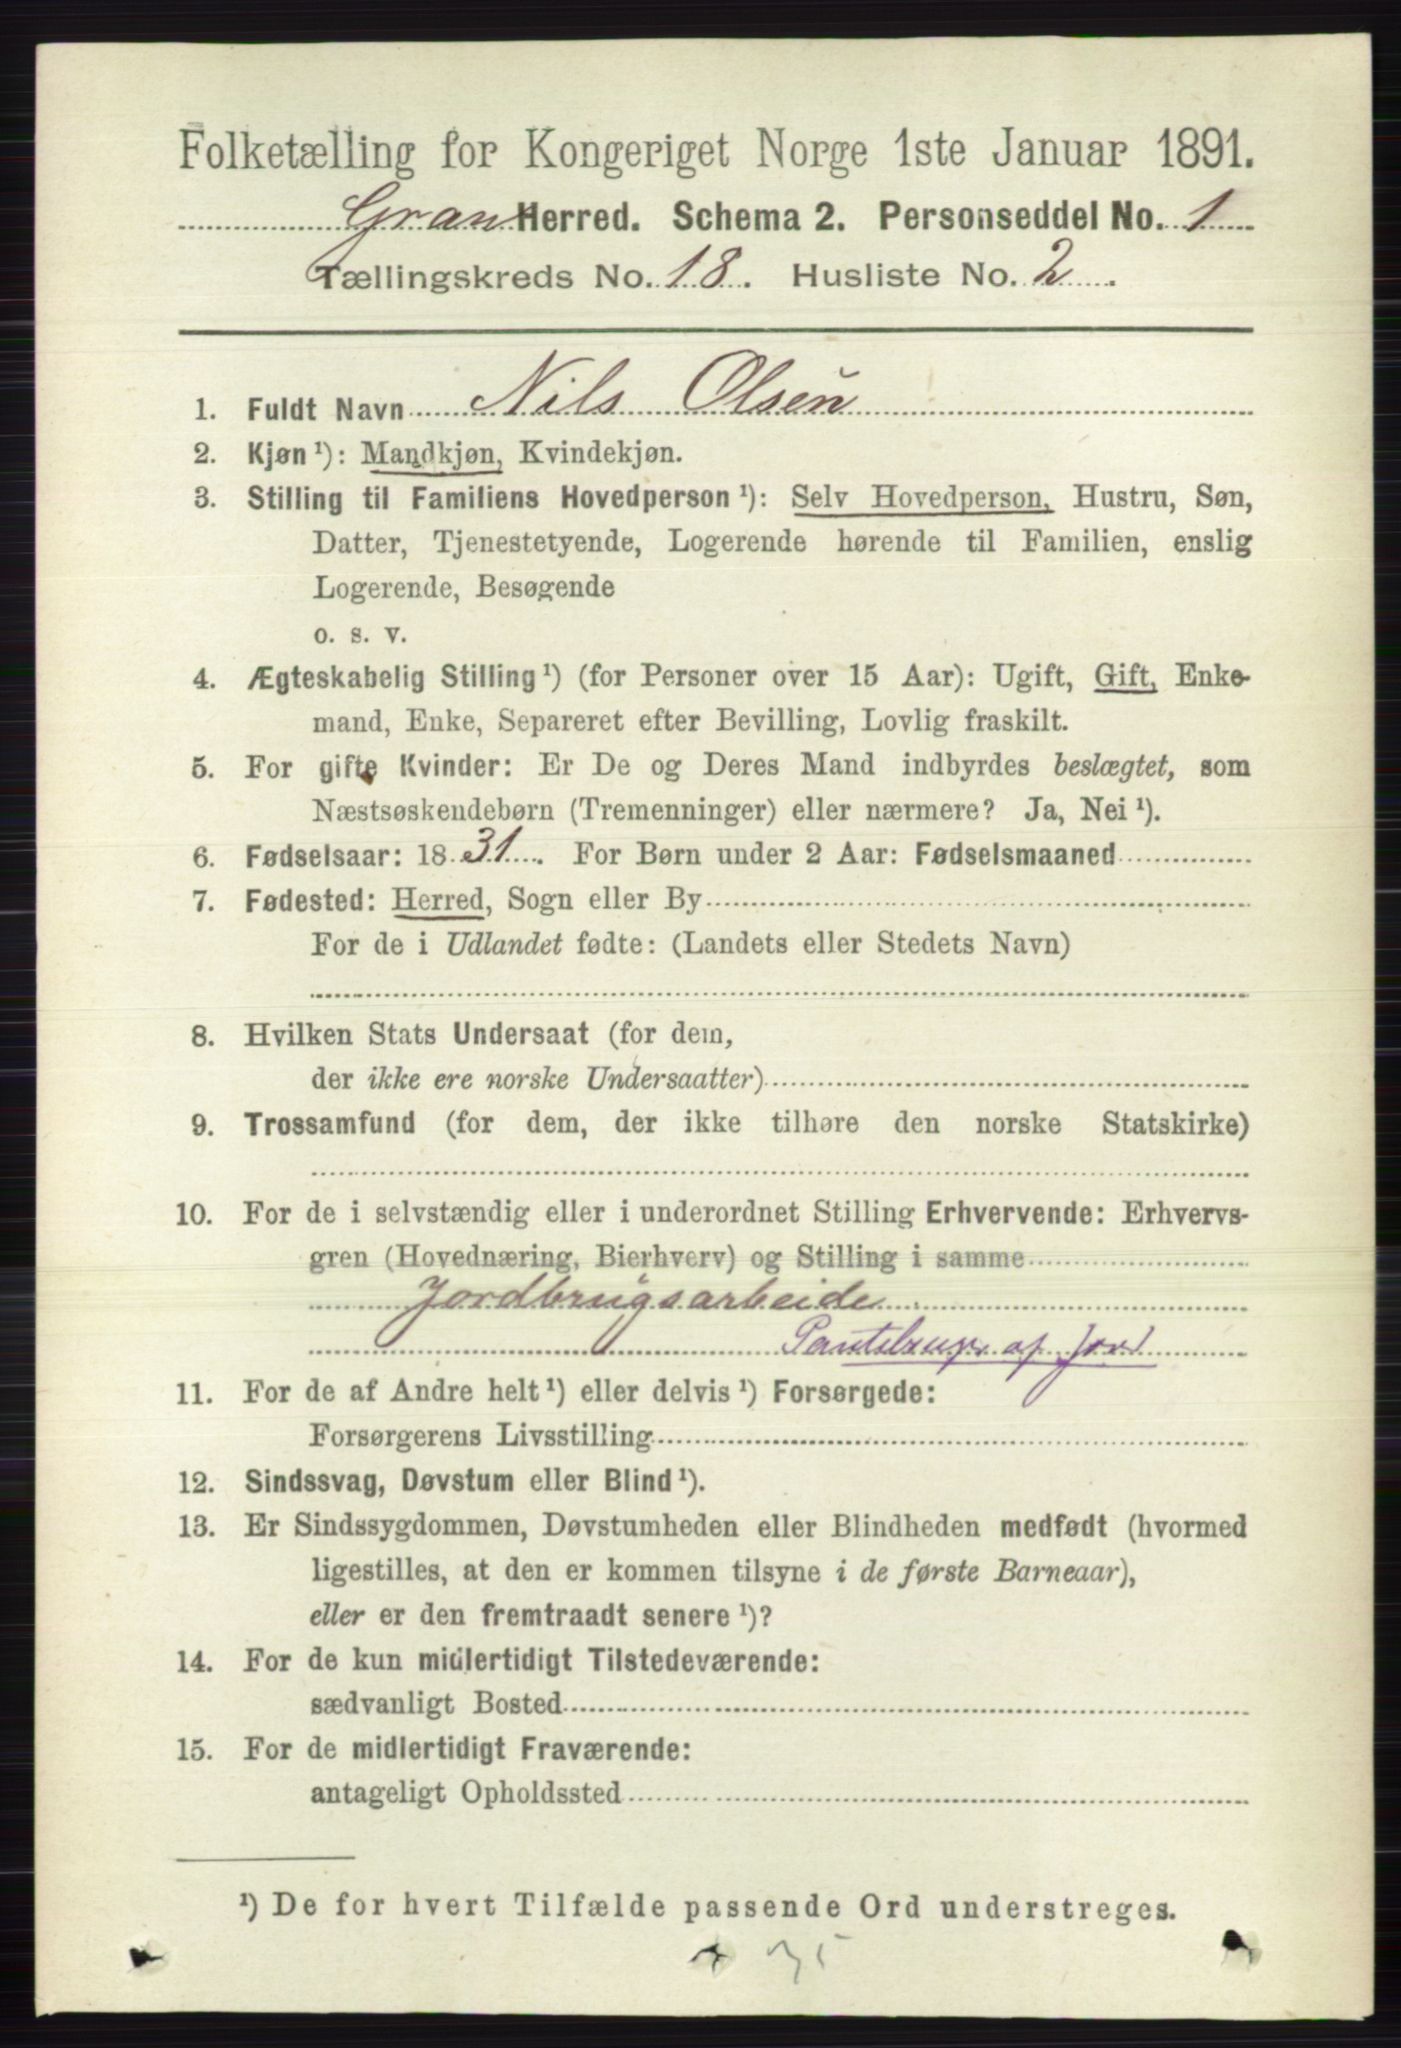 Folketælling for Kongeriget Norge 1ste Januar 1891.
Gran Herred. Schema 2. Personseddel No. 1
Tællingskreds No. 18. Husliste No. 2.
1. Fuldt Navn Nils Olsen
2. Kjøn ¹): Mandkjøn, Kvindekjøn.
3. Stilling til Familiens Hovedperson ¹): Selv Hovedperson, Hustru, Søn,
Datter, Tjenestetyende, Logerende hørende til Familien, enslig
Logerende, Besøgende
o. s. v.
4. Ægteskabelig Stilling ¹) (for Personer over 15 Aar): Ugift, Gift, Enke-
mand, Enke, Separeret efter Bevilling, Lovlig fraskilt.
5. For gifte Kvinder: Er De og Deres Mand indbyrdes beslægtet, som
Næstsøskendebørn (Tremenninger) eller nærmere? Ja, Nei ¹).
6. Fødselsaar: 1831. For Børn under 2 Aar: Fødselsmaaned
7. Fødested: Herred, Sogn eller By
For de i Udlandet fødte: (Landets eller Stedets Navn)
8. Hvilken Stats Undersaat (for dem,
der ikke ere norske Undersaatter)
9. Trossamfund (for dem, der ikke tilhøre den norske Statskirke)
10. For de i selvstændig eller i underordnet Stilling Erhvervende: Erhvervs-
gren (Hovednæring, Bierhverv) og Stilling i samme
Jordbrugsarbeide
af Jord
11. For de af Andre helt ¹) eller delvis ¹) Forsørgede:
Forsørgerens Livsstilling
12. Sindssvag, Døvstum eller Blind ¹).
13. Er Sindssygdommen, Døvstumheden eller Blindheden medfødt (hvormed
ligestilles, at den er kommen tilsyne i de første Barneaar),
eller er den fremtraadt senere ¹)?
14. For de kun midlertidigt Tilstedeværende:
sædvanligt Bosted
15. For de midlertidigt Fraværende:
antageligt Opholdssted
¹) De for hvert Tilfælde passende Ord understreges.